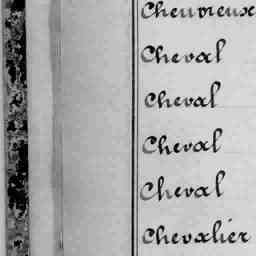 Chevreux
Cheval
Cheval
Cheval
Cheval
Chevalier